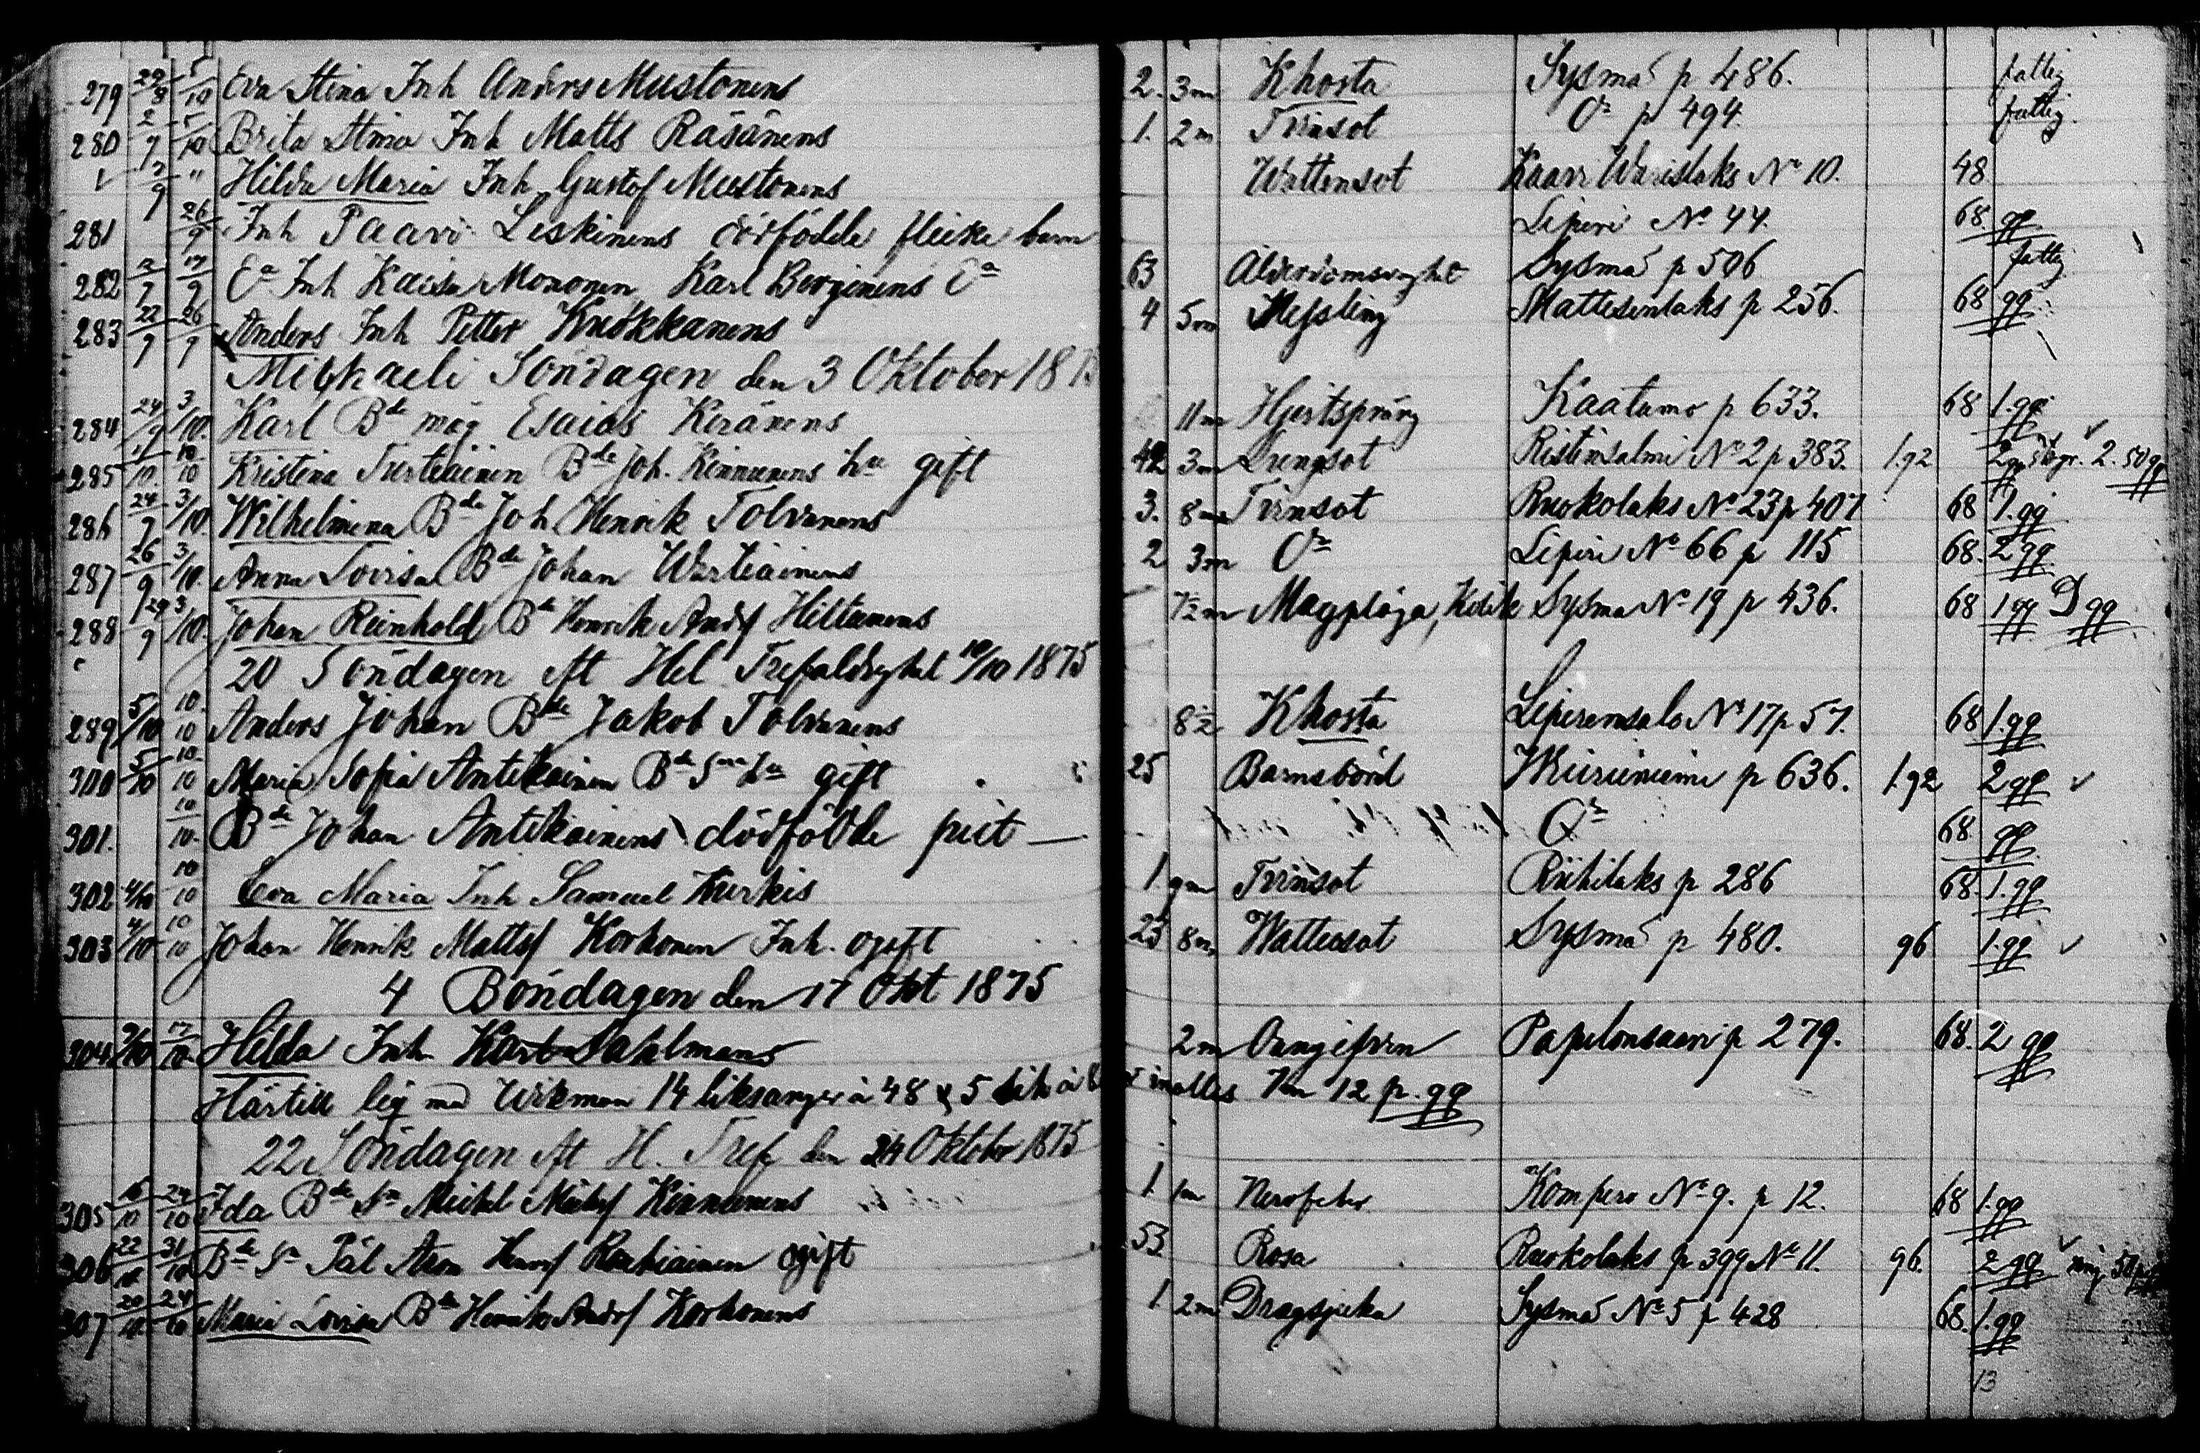 279 29/8 5/10 Eva Stina Inh Anders Mustonens 2. 3m Khosta Sysmä p 486. fattig
280 2/9 5/10 Brita Stina Inh Matts Räsänens 1. 2m Tvinsot Do p 494. fattig.
12/9 " Hilda Maria Inh Gustof Mustonens Wattensot Kaavi Waristaks No 10. 48
281 26/9 Inh Paavo Leskinens dödfödda flicke barn Liperi No 44. 68 gg
282 17/9 Da Inh Kaisa Mononen, Karl Da 63 Ålderdomsvaghet Sysmä p 506 fattig
283 22/9 26/9 Anders Inh Petter Knökkänens 4 5m Messling Mattisenlaks p 256. 68 gg
Mickaeli Söndagen den 3 Oktober 18
284 24/9 3/10. Karl Bde måg Esaias Keränens 11m Hjertsprång Kaatamo p 633. 68 1.gg
285 10/10 Kristina Turtiainen Bde Joh. Kinnunens hu gift 42 3m Lungsot Ristinsalmi No 2 p 383. 1.92 2 2. 50
286 24/9 3/10. Wilhelmina Bde Joh Henrik Tolvanens 3. 8m Tvinsot Ruokolaks No 23 p 407 68 1.gg
287 26/9 3/10. Anna Lovisa Bde Johan Wartiainens 2 3m Do Liperi No 66 p 115 68. 2 gg
288 29/9 3/10. Johan Reinhold Bde Henrik Andf Hiltunens 7½m Magplåga, Kolik Sysmä No 19 p 436. 68 1 gg gg
20 Söndagen eft Hel Trefaldighet 10/10 1875
289 5/10 10/10 Anders Johan Bde Jakob Tolvanens 8½ Khosta Liperinsalo No 17 p 57. 68 1.gg
300 5/10 10/10 Maria Sofia Antikainen Bde gift 25 Barnsbörd p 636. 1.92 2 gg
301. 10/10. Bde Johan Antikainens dödfödde Do 68. gg
302 4/10 10/10 Eva Maria Inh Samuel Kurkis 1 9m Tvinsot Riihilaks p 286 68. 1.gg
303 4/10 10/10 Johan Henrik Mattsf Korhonen Inh. ogift 23 8m Wattusot Sysmä p 480. 96 1.gg
4 Böndagen den 17 Okt 1875
304. 17/10. Hilda Inh Karl Sahlmans 2m Papelonsaari p 279. 68. 2 gg
Härtill lig med 14 liksånger à 48 & 5 lik à inalles 12 p. gg
22 Söndagen eft H. Tref den 24 Oktober 1875
305 16/10 24/10 Ida Bde Sn Mickel Kinnunens 1 1m Nervfeber Kompero No 9. p 12. 68 1.gg
306 22/10 31/10 Bde Sn Pål ogift 53. Rosa Ruokolaks p 399 No 11. 96. 2 gg
307 20/10 24/10 Maria Lovisa Bde Henrik Andf Korhonens 1 2m Dragsjuka Sysmä No 5 p 428 68. 1.gg
13